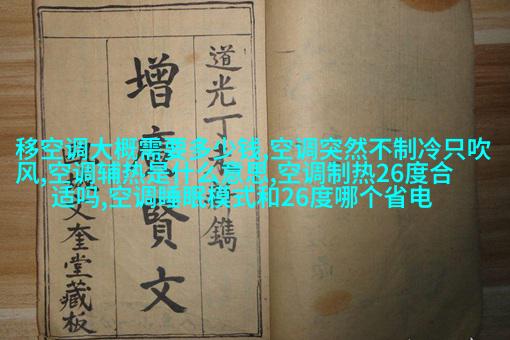 道光丁鐫
增廣賢文
文奎堂藏板
移空调大概需要多少钱,空调突然不制冷只吹
风,空调辅热是什么意思,空调制热26度合
适吗,空调睡眠模式和26度哪个省电